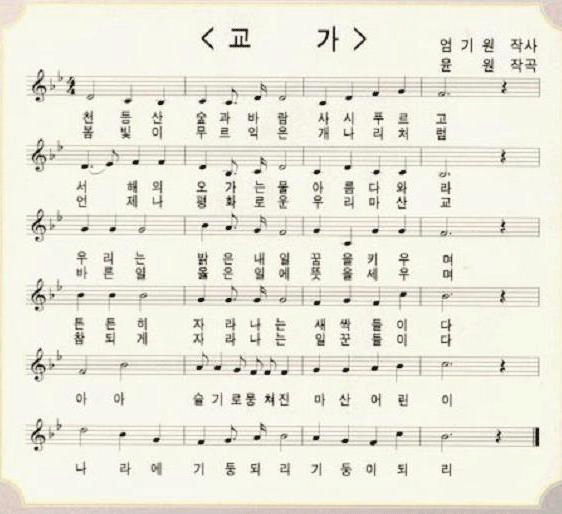 < 교 가 >
엄 기 원 작사
윤 원 작곡
천 등 산 숲 과 바 람 사 시 푸 르 고
봄 빛 이 무 르 익 은 개 나 리 처 럼
서 해 의 오 가 는 물 아 름 다 와 라
언 제 나 평 화 로 운 우 리 마 산 교
우 리 는 밝 은 내 일 꿈 을 키 우 며
바 른 일 옳 은 일 에 뜻 을 세 우 며
튼 튼 히 자 라 나 는 새 싹 들 이 다
참 되 게 자 라 나 는 일 꾼 들 이 다
아 아 슬 기 로 뭉 쳐 진 마 산 어 린 이
나 라 에 기 둥 되 리 기 둥 이 되 리